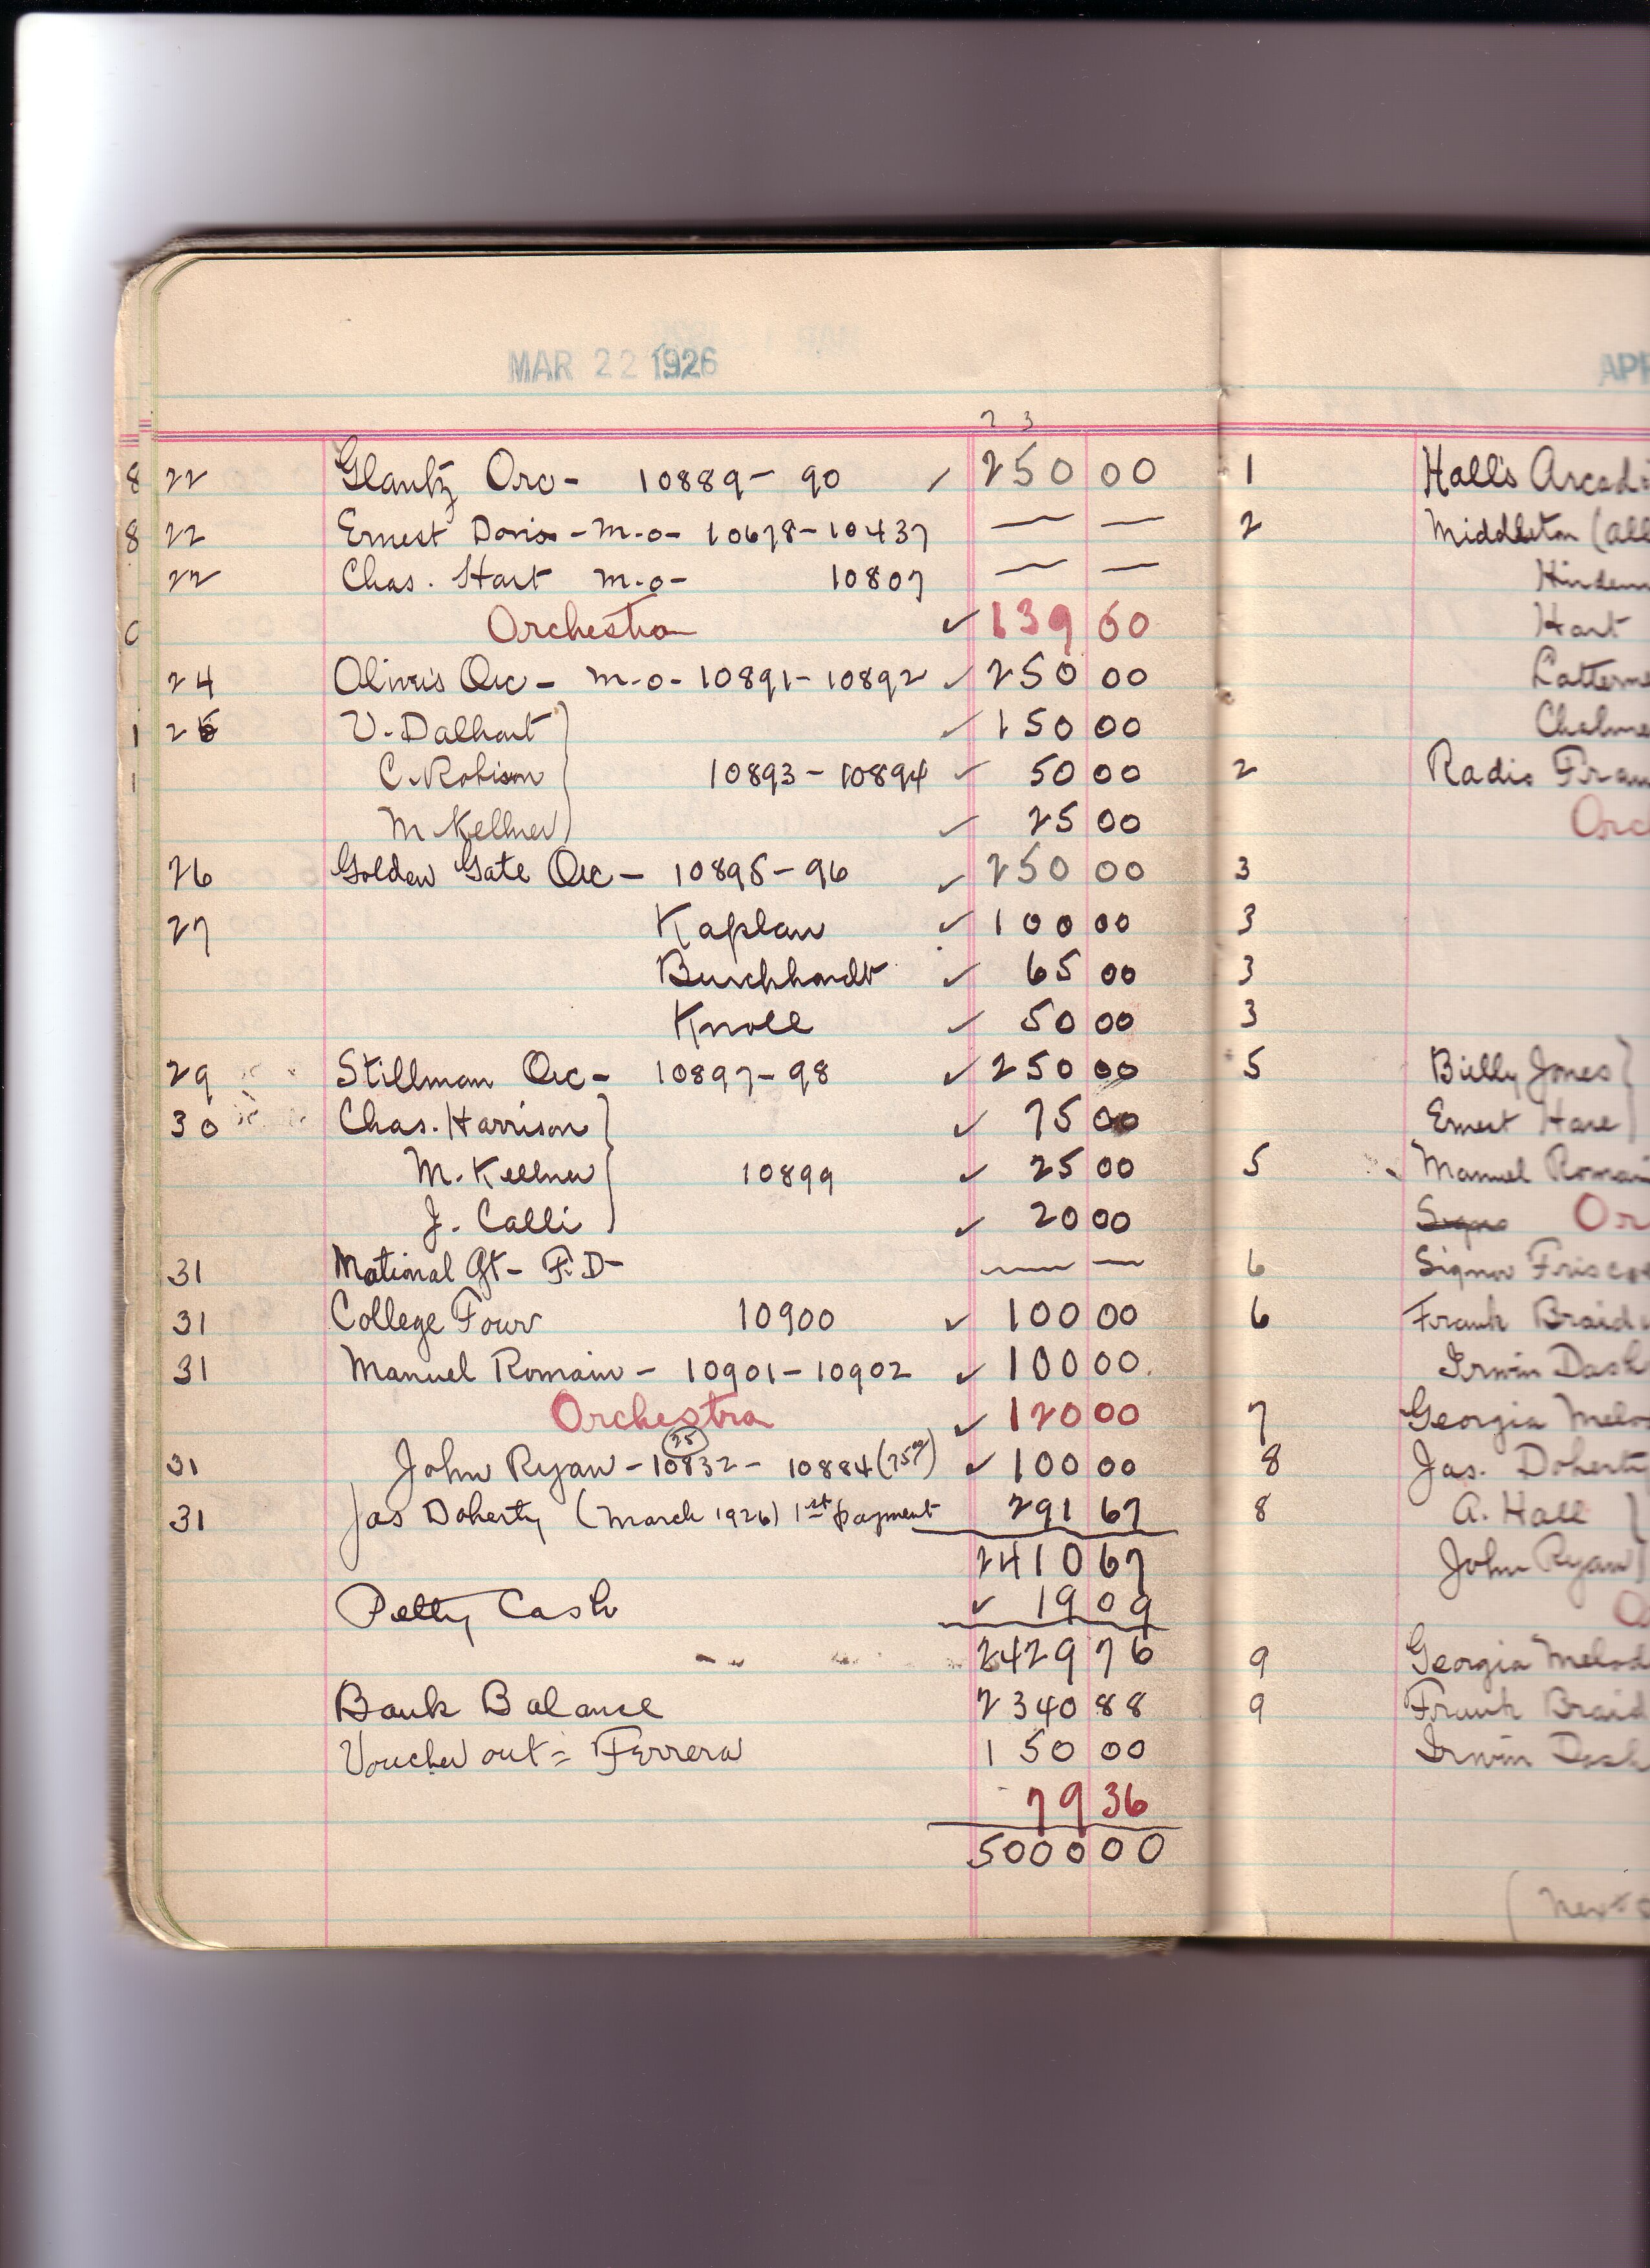 MAR 22 1926
APR
2 3
8 22 Glantz Orc - 10889 - 90 ✓ 250 00
8 22 Ernest Davis - m.o - 10678 - 10437 — —
22 Chas. Hart m.o - 10807 — —
Orchestra ✓ 139 60
24 Oliver's Orc - m.o - 10891 - 10892 ✓ 250 00
1 25 V. Dalhart ✓ 150 00
1 C. Robison 10893 - 10894 ✓ 50 00
M. Kellner ✓ 25 00
26 Golden Gate Orc - 10895 - 96 ✓ 250 00
27 Kaplan ✓ 100 00
Burckhardt ✓ 65 00
Knoll ✓ 50 00
29 Stillman Orc - 10897 - 98 ✓ 250 00
30 Chas. Harrison ✓ 75 00
M. Kellner 10899 ✓ 25 00
J. Calli ✓ 20 00
31 National Qt - F.D - — —
31 College Four 10900 ✓ 100 00
31 Manuel Romain - 10901 - 10902 ✓ 100 00
Orchestra ✓ 120 00
25
31 John Ryan - 10832 - 10884 (75⁰⁰) ✓ 100 00
31 Jas Doherty (March 1926) 1st payment 291 67
2410 67
Petty Cash ✓ 19 09
2429 76
Bank Balance 2340 88
Voucher out = Ferrera 150 00
79 36
5000 00
1 Hall's Arcadi
2 Middleton (all
Hindem
Hart
Chalme
2 Radio Fran
Orc
3
3
3
3
5 Billy Jones
Ernest Hare
5 Manuel Romain
Signo Or
6 Signor Frisco
6 Frank Braid
Irwin Dash
7 Georgia Melo
8 Jas. Doherty
8 A. Hall
John Ryan
O
9 Georgia Melod
9 Frank Braid
Irwin Dash
(Next